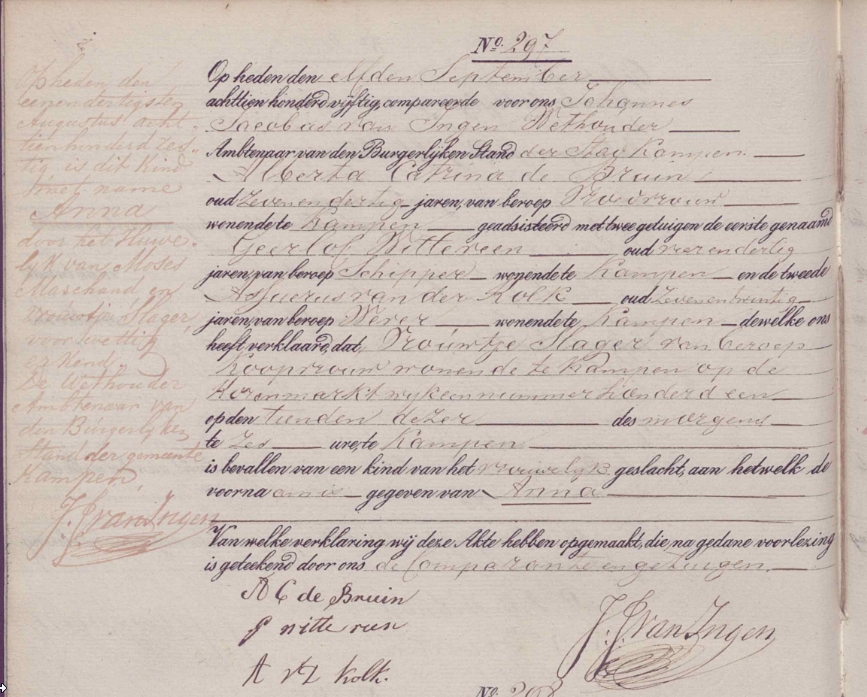 No. 297
Op heden den elfden September
achttien honderd vijftig, compareerde voor ons Johannes
Jacobus van Ingen Wethouder
Ambtenaar van den Burgerlijken Stand der Stad Kampen
Alberta Catrina de Bruin
oud Zevenendertig jaren, van beroep Vroedvrouw
wonende te Kampen geadsisteerd met twee getuigen de eerste genaamd
Geerlof Witteveen oud vierendertig
jaren, van beroep Schipper wonende te Kampen en de tweede
Assuerus van der Kolk oud Zevenentwintig
jaren, van beroep Wever wonende te Kampen dewelke ons
heeft verklaard, dat, Vrouwtje Slager van beroep
Koopvrouw wonende te Kampen op de
Korenmarkt wijk een nummer honderd een
op den tienden dezer des morgens
te Zes ure, te Kampen
is bevallen van een kind van het vrouwelijk geslacht, aan hetwelk de
voorna am is gegeven van Anna
Van welke verklaring wij deze Akte hebben opgemaakt, die na gedane voorlezing
is geteekend door ons de Comparante en getuigen.
A C de Bruin
g witte veen
A vd kolk.
J. J. van Ingen
No. 298
Op heden den
eenendertigsten
Augustus acht-
tienhonderd zes-
tig is dit Kind
met name
Anna
door het Huwe-
lijk van Moses
Marchand en
Vrouwtje Slager
voor wettig
erkend,
De Wethouder
Ambtenaar van
den Burgerlijken
Stand der gemeente
Kampen,
J. J. van Ingen